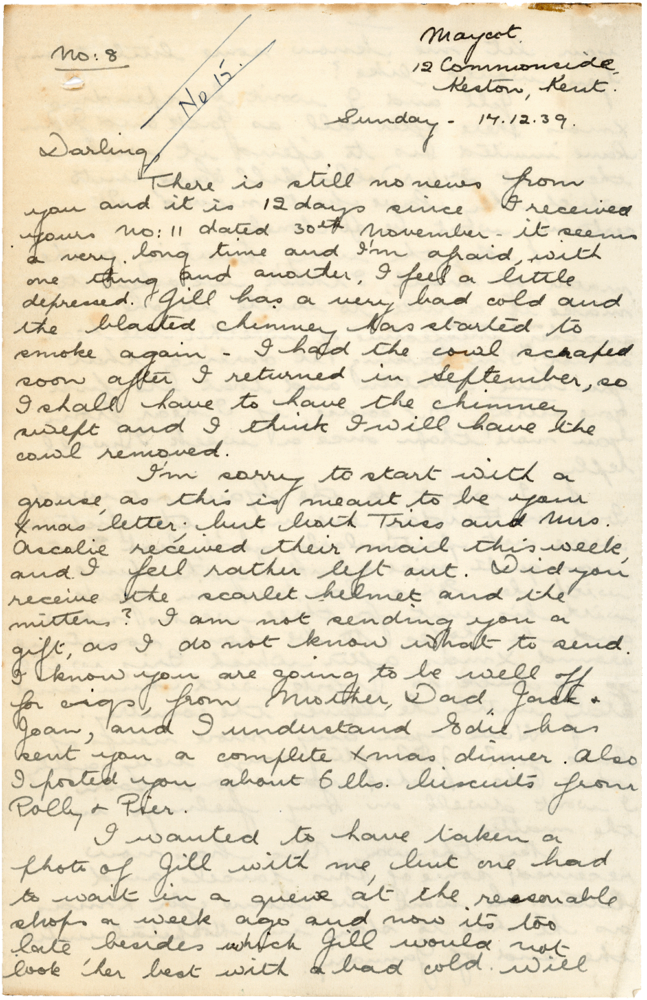 No: 8
No 15.
Maycot
12 Commonside,
Keston, Kent.
Sunday - 17.12.39.
Darling,
There is still no news from
you and it is 12 days since I received
yours no: 11 dated 30th November - it seems
a very long time and I'm afraid, with
one thing and another, I feel a little
depressed. Gill has a very bad cold and
the blasted chimney has started to
smoke again - I had the cowl scraped
soon after I returned in September, so
I shall have to have the chimney
swept and I think I will have the
cowl removed.
I'm sorry to start with a
grouse, as this is meant to be your
Xmas letter; but both Triss and Mrs.
Ascolie received their mail this week,
and I feel rather left out. Did you
receive the scarlet helmet and the
mittens? I am not sending you a
gift, as I do not know what to send.
I know you are going to be well off
for cigs, from Mother, Dad, Jack +
Joan, and I understand Edie has
sent you a complete Xmas dinner. Also
I posted you about 6 lbs. biscuits from
Polly + Pier.
I wanted to have taken a
photo of Gill with me, but one had
to wait in a queue at the reasonable
shops a week ago and now its too
late besides which Gill would not
look her best with a bad cold. Will